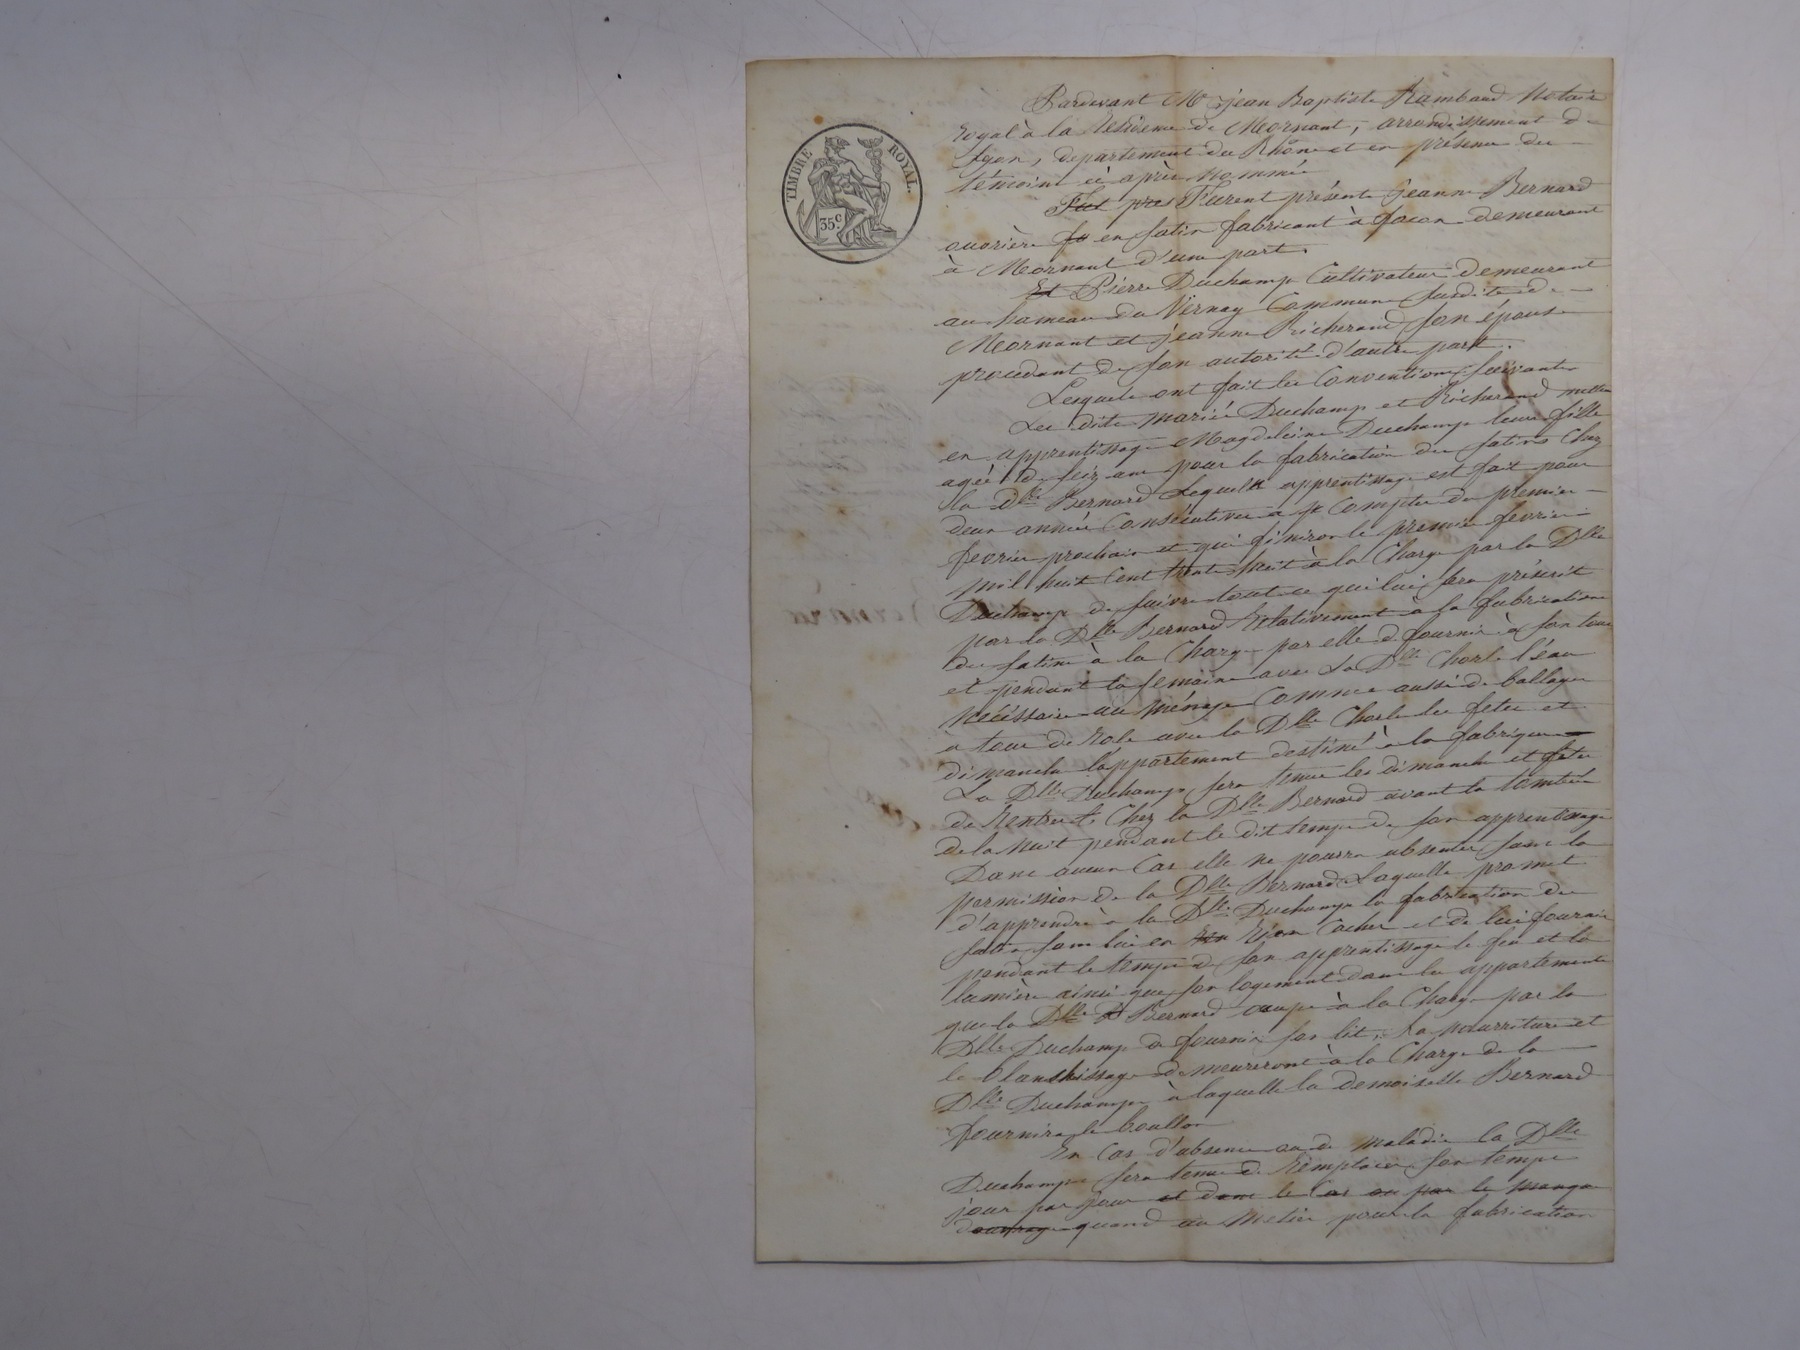 TIMBRE ROYAL.
35c.
Pardevant Me jean Baptiste Rambaud Notaire
Royal à la Residence de Mornant, arrondissement de
Lyon, departement du Rhône et en présence des
témoins ci après nommés
Fut pres Furent présents jeanne Bernard
ouvrière fa en satin fabricant à facon demeurant
à Mornant d'une part.
Et Pierre Duchamp Cultivateur demeurant
au hameau du Vernay Commune susdite de
Mornant et jeanne Richerand son épouse
procedant de son autorité d'autre part.
Lesquels ont fait les Conventions suivantes
Les dits mariés Duchamp et Richerand mettent
en apprentissage Magdeleine Duchamp leur fille
agée de seize ans pour la fabrication des satins Chez
la Dlle Bernard Lequel apprentissage est fait pour
deux années Consécutives a Compter du premier
fevrier prochain et qui finiront le premier fevrier
mil huit Cent trente huit à la Charge par la Dlle
Duchamp de suivre tout ce qui lui sera préscrit
par la Dlle Bernard Relativement à la fabrication
des satins à la Charge par elle de fournir à son tour
et pendant la semaine avec La Dlle Charle l'eau
necéssaire au ménage Comme aussi de ballayer
a tour de Role avec la Dlle Charle les fetes et
dimanche l'appartement destiné à la fabrique
La Dlle Duchamp sera tenue les dimanche et fete
de Rentrer Chez la Dlle Bernard avant la tombée
de la Nuit pendant le dit temps de son apprentissage
Dans aucun Cas elle ne pourra absenter sans la
permission de la Dlle Bernard Laquelle promet
d'apprendre à la Dlle Duchamp la fabrication du
satin sans lui en Rien Cacher et de lui fournir
pendant le temps de son apprentissage le feu et la
lumière ainsi que son logement dans les appartements
que la Dlle Bernard occupe à la Charge par la
Dlle Duchamp de fournir son lit, La nourriture et
le blanchissage demeureront à la Charge de la
Dlle Duchamp à laquelle la demoiselle Bernard
fournira le boullon
En Cas d'absence ou de maladie la Dlle
Duchamp sera tenue de Remplacer son temps
jour par jour et dans le Cas ou par le manque
d'ouvrage quand au Metier pour la fabrication